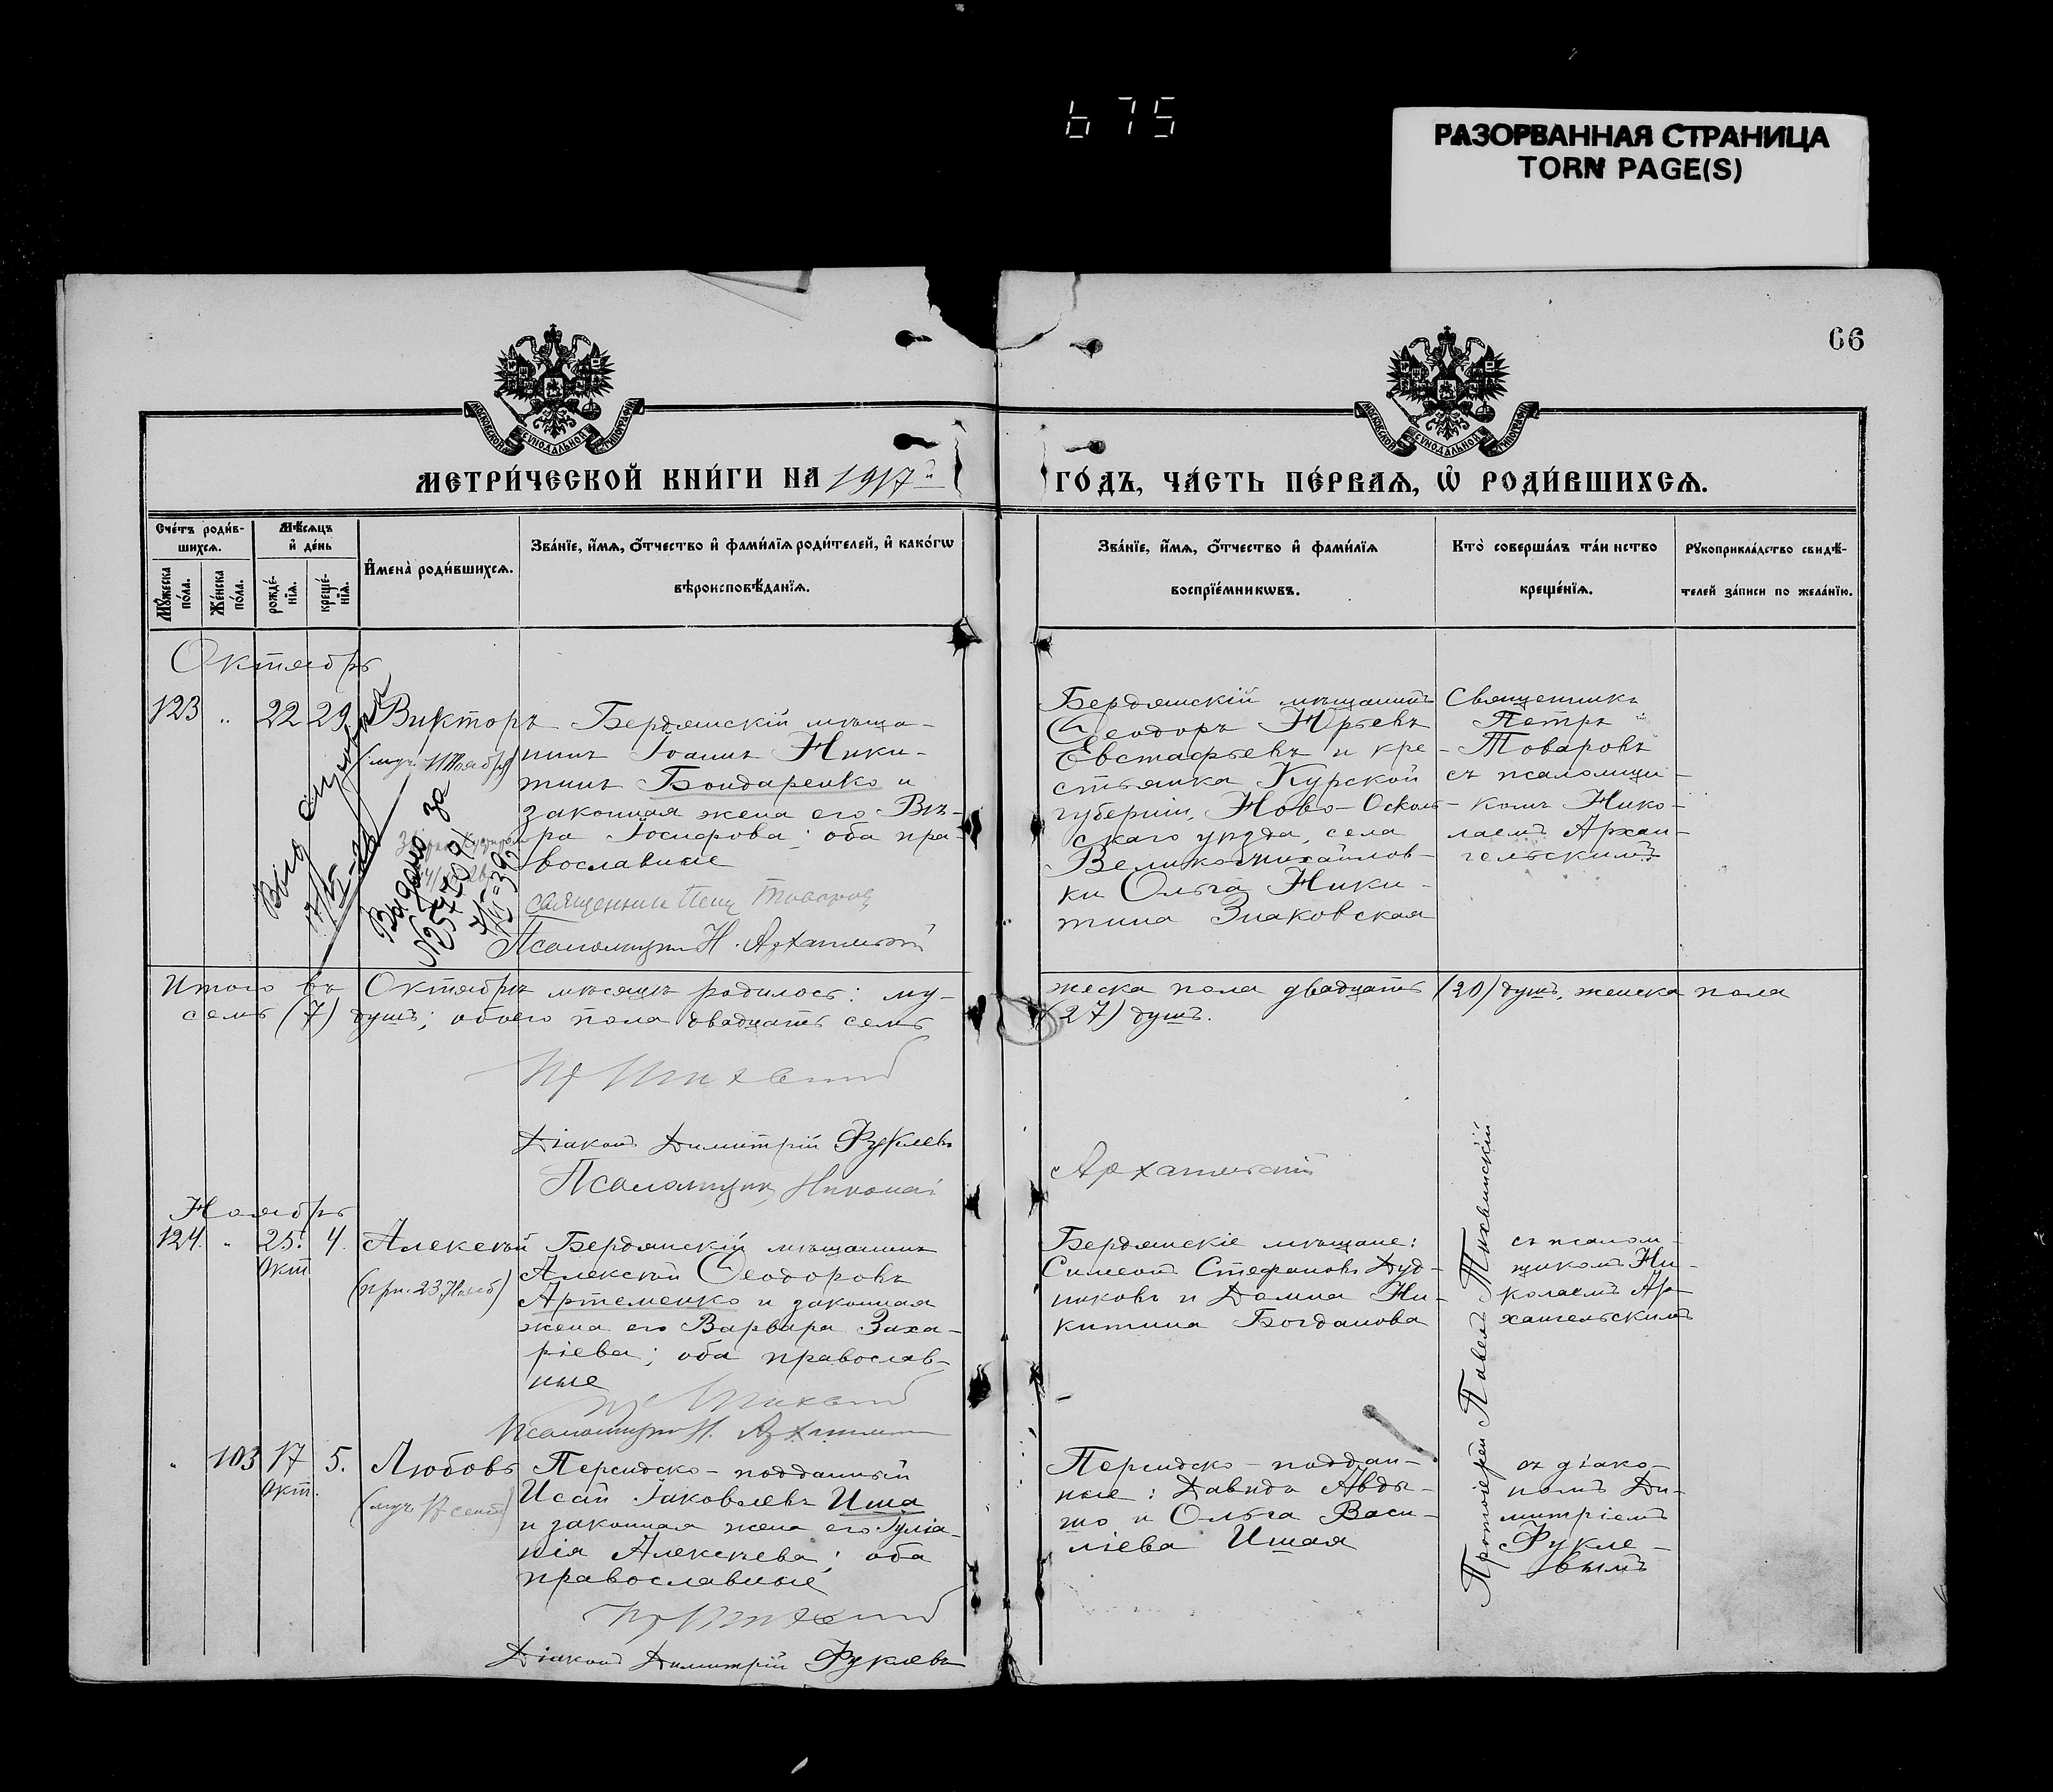 675
РАЗОРВАННАЯ СТРАНИЦА
TORN PAGE(S)
66
МОСКОВСКОЙ СѴНОДАЛЬНОЙ ТИПОГРАФІИ
МОСКОВСКОЙ СѴНОДАЛЬНОЙ ТИПОГРАФІИ
МЕТРИ́ЧЕСКОЙ КНИ́ГИ НА 1917й
ГО́ДЪ, ЧА́СТЬ ПЕ́РВАѦ, Ѡ҆ РОДИ́ВШИХСѦ.
Сче́тъ роди́в-
шихсѧ.
Мꙋ́жеска по́ла.
Же́нска по́ла.
Мѣ́сѧцъ
и҆ де́нь
рожде́-
нїѧ.
креще́-
нїѧ.
И҆мена̀ роди́вшихсѧ.
Зва́нїе, и҆́мѧ, ѻ҆́тчество и҆ фами́лїѧ роди́телей, и҆ како́гѡ
вѣроисповѣ́данїѧ.
Зва́нїе, и҆́мѧ, ѻ҆́тчество и҆ фами́лїѧ
воспрїе́мникѡвъ.
Кто̀ соверша́лъ та́инство
креще́нїѧ.
Рꙋкоприкла́дство свидѣ́-
телей за́писи по жела́нїю.
Октябрь
123 " 22 29 Викторъ
(муч. 11 Ноября)
Бердянскій мѣща-
нинъ Іоаннъ Ники-
тинъ Бондаренко и
законная жена его Вѣ-
ра Іосифова; оба пра-
вославные
Священникъ Петр Товаров
Псаломщикъ Н. Архангельскій
Выдано за
№ 25740
Бердянскій мѣщанинъ
Ѳеодоръ Юрьевъ
Евстафьевъ и кре-
стьянка Курской
губерніи, Ново-Осколь-
скаго уѣзда, села
Великомихайлов-
ки Ольга Ники-
тина Знаковская
Священникъ
Петръ
Товаровъ
съ псаломщи-
комъ Нико-
лаемъ Архан-
гельскимъ
Итого въ Октябрѣ мѣсяцѣ родилось: му-
жеска пола двадцать (20) душъ, женска пола
семь (7) душъ; обоего пола двадцать семь
(27) душъ.
Діаконъ Димитрій Фуклевъ
Псаломщикъ Николай
Архангельскій
Ноябрь
124. " 25. 4. Алексѣй
Окт.
(пр. 23 Нояб)
Бердянскій мѣщанинъ
Алексѣй Ѳеодоровъ
Артеменко и законная
жена его Варвара Заха-
ріева; оба православ-
ные
Псаломщикъ Н. Архангельскій
Бердянскіе мѣщане:
Симеонъ Стефановъ Дуд-
никовъ и Домна Ни-
китина Богданова
Протоіерей Павелъ Тихвинскій
съ псалом-
щикомъ Ни-
колаемъ Ар-
хангельскимъ
" 103 17 5. Любовь
Окт.
(муч. 17 сент)
Персидско-подданный
Исай Іаковлевъ Иша
и законная жена его Іуліа-
нія Алексѣева; оба
православные
Діаконъ Димитрій Фуклевъ
Персидско-поддан-
ные: Давидъ Авды-
шо и Ольга Васи-
ліева Ишая
съ діако-
номъ Ди-
митріемъ
Фукле-
вымъ